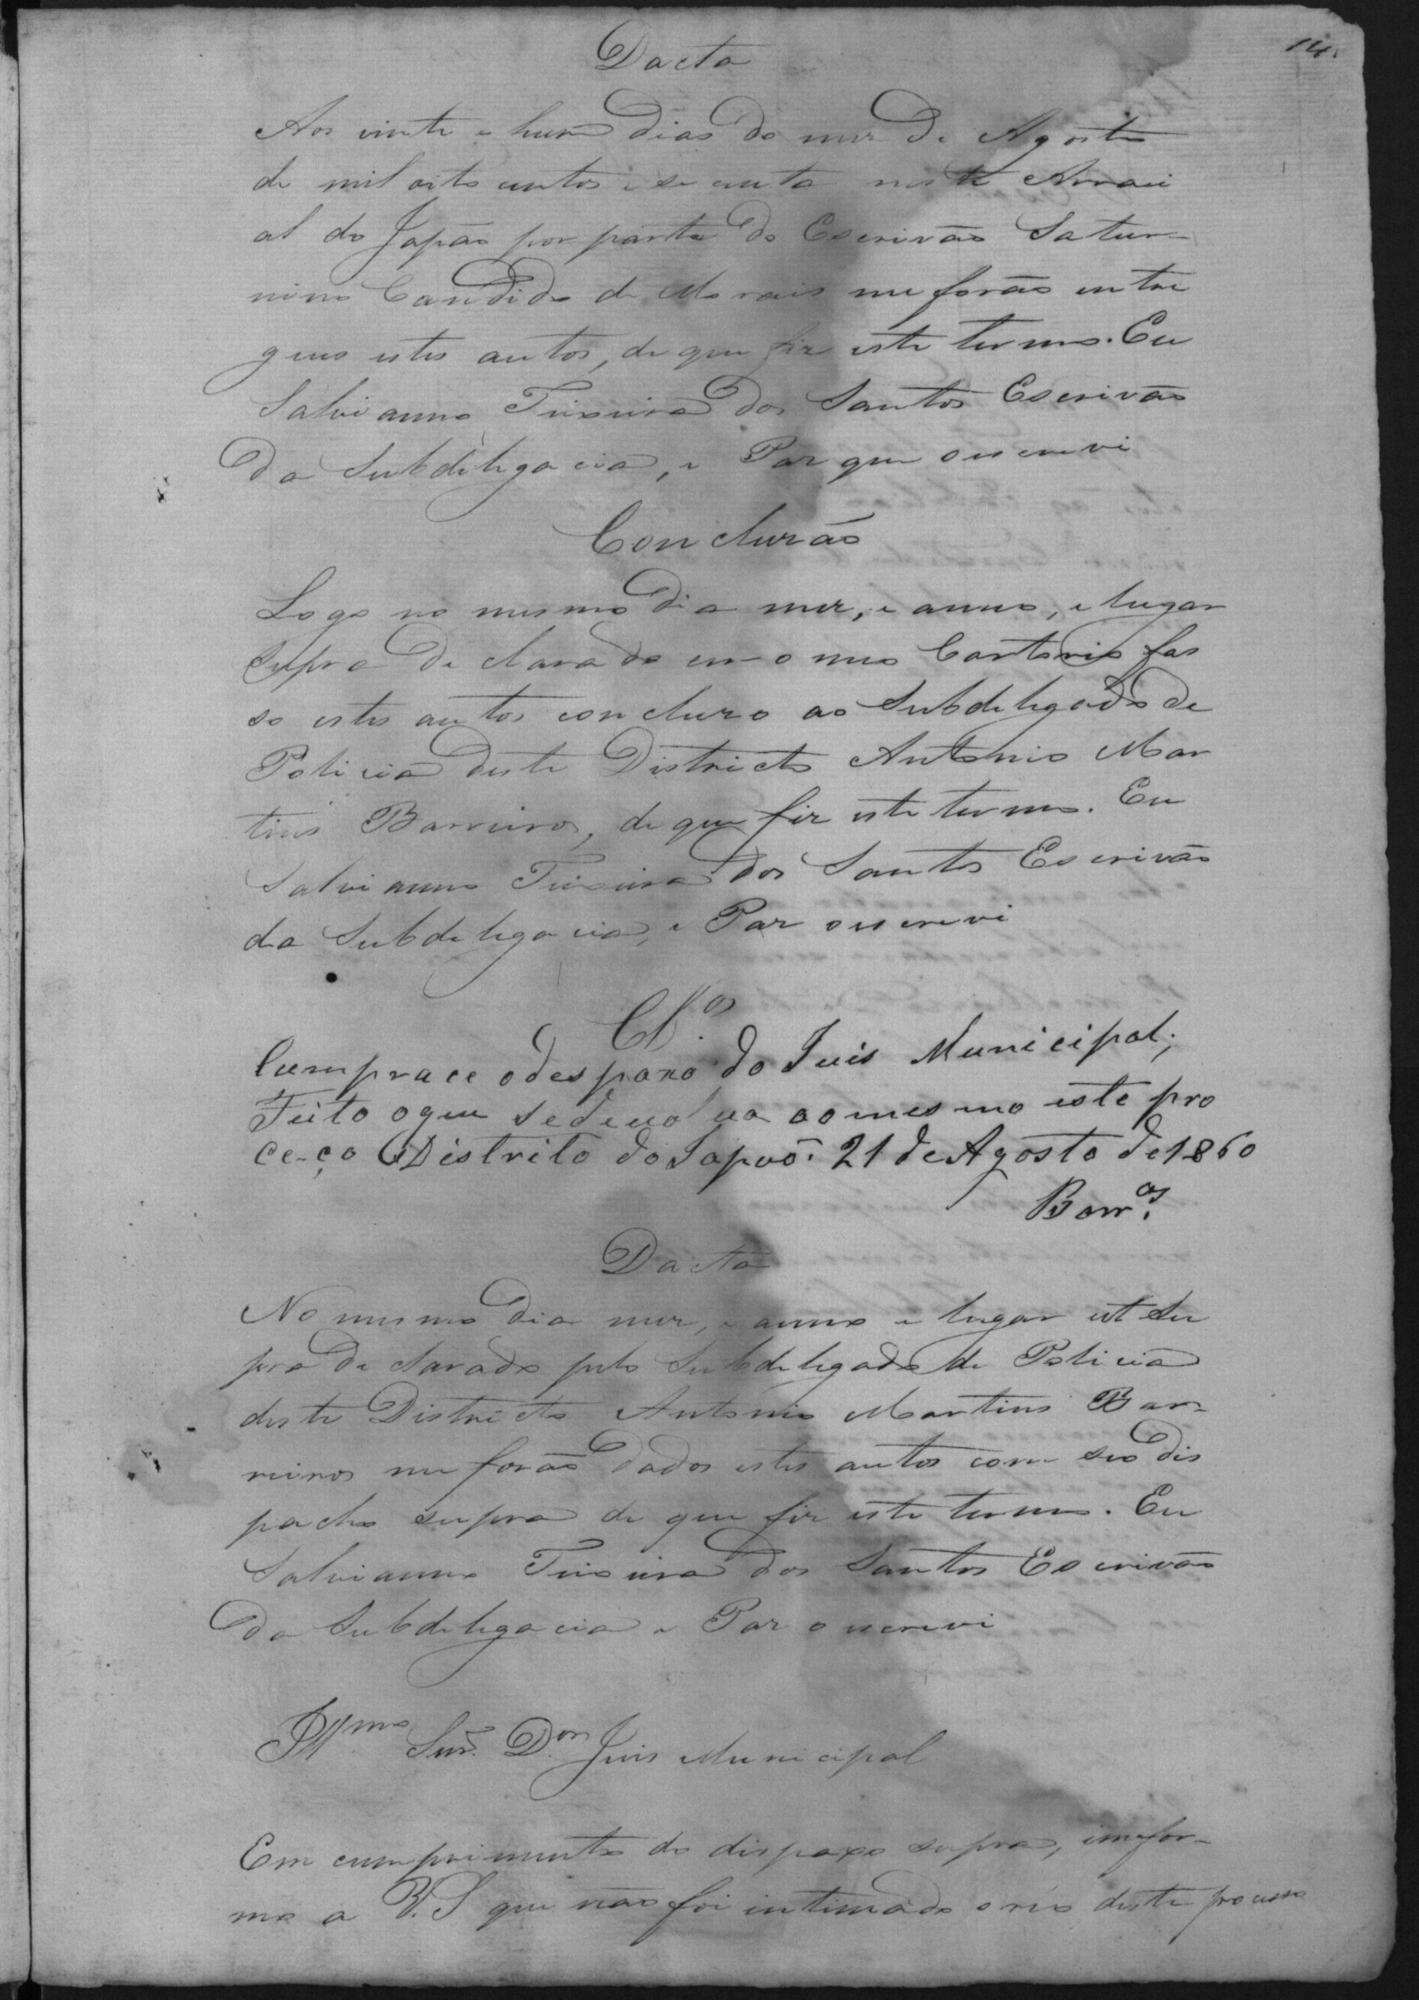 14
Dacta
Aos vinte e hum dias do mez de Agosto
de mil oito centos e secenta neste Arrai
al do Japão por parte do Escrivão Satur-
nino Candido de Morais me forão entre
gues estes autos, de que fiz este termo. Eu
Salvianno Teixeira dos Santos Escrivão
da Subdelegacia, e Paz que o escrevi
Concluzão
Logo no mesmo dia mez, e anno, e lugar
supra declarado em o meo Cartorio fas
so estes autos concluzo ao Subdelegado de
Policia deste Districto Antonio Mar
tins Barreiros, de que fiz este termo. Eu
Salvianno Teixeira dos Santos Escrivão
da Subdelegacia, e Paz o escrevi
Cl.os
Cumprace o despaxo do Juis Municipal;
Feito o que se devolva ao mesmo este pro
ce-ço Distrito do Japaõ. 21 de Agosto de 1860
Barr.os
Dacta
No mesmo dia mez, e anno e lugar ut su
pra declarado pelo Subdelegado de Policia
deste Districto Antonio Martins Bar-
reiros me forão dados estes autos com seo dis
pacho supra de que fiz este termo. Eu
Salvianno Teixeira dos Santos Escrivão
da Subdelegacia e Paz o escrevi
Ill.mo Snr. D.or Juis Municipal
Em cumprimento do dispaxo supra, imfor-
mo a V.S que não foi intimado o reo deste processo